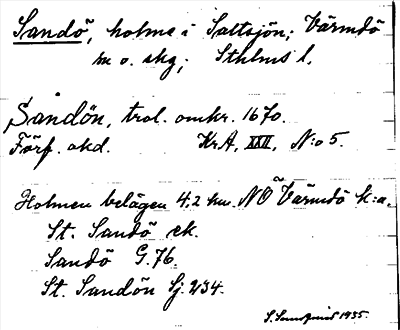 Sandö, holme i Saltsjön; Värmdö
m o. skg; Sthlms l.
Sandön, trol. omkr. 1670.
Förf. okd. KrA, XXII, N:o 5.
Holmen belägen 4,2 km. NO Värmdö k:a.
St. Sandö ek.
Sandö G.76.
St. Sandön Sj. 234.
S. Sundqvist 1935